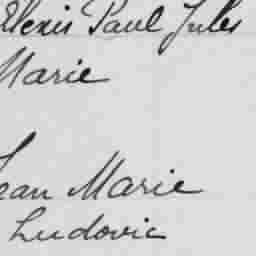 Alexis Paul Jules
Marie
Jean Marie
Ludovic